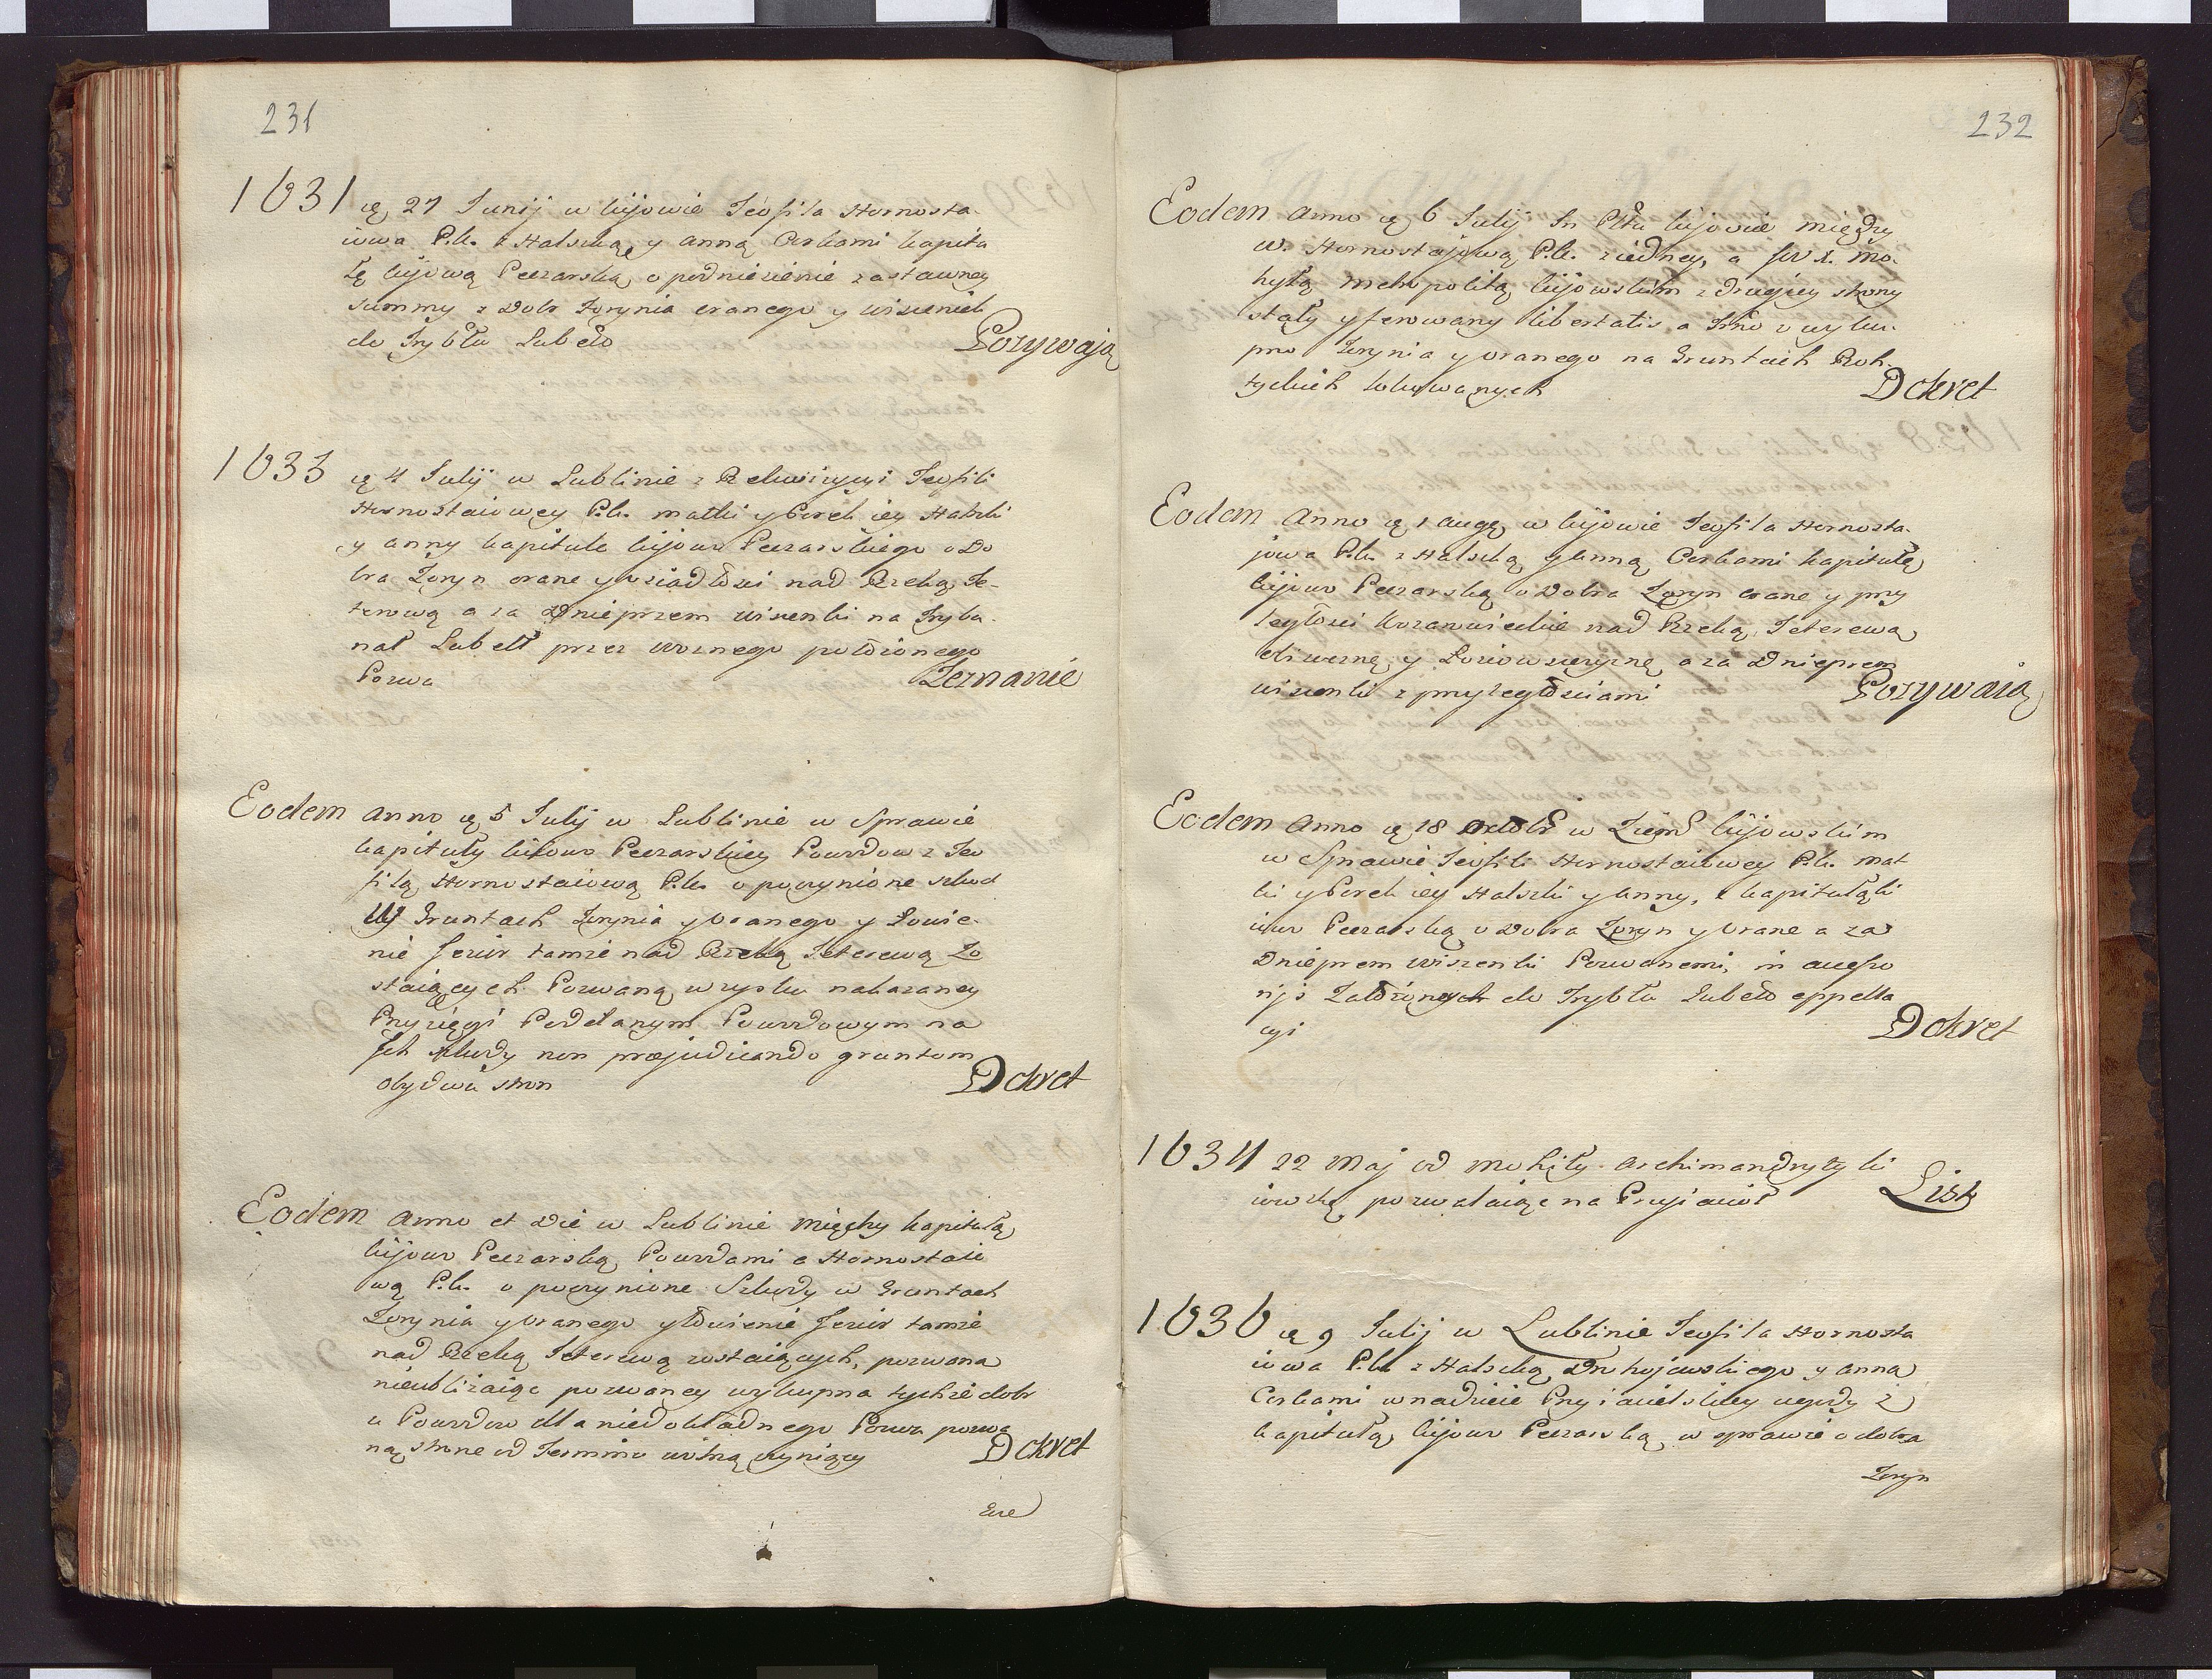 231
1631 ią 27 Junij w Kijowie Teofila Hornosta-
iowa P.K. z Halszką y Anną Corkami Kapitu
łę Kijową Peczarską o podniesienie zastawney
summy z Dobr Żorynia oranego y wiszenek
do Trybłu Lubełł Pozywają
1633 ią 4 Julij w Lublinie z Rekwizycyi Teofili
Hornostaiowey P.K. matki y Corek iey Halszki
y Anny Kapitule Kijowo Peczarskiego o Do
bra Żoryn orane y osiadłości nad Rzeką Te-
terową a za Dnieprzem wiszenki na Trybu-
nał Lubełł przez woznego położonego
Pozwu Zeznanie
Eodem Anno ią 5 Julij w Lublinie w Sprawie
Kapituły Kiiowo Peczarskiey Powodow z Teo
filą Hornostaiową P.K. o poczynione szkod
W Gruntach Żorynia y oranego y Łowie-
nie Jezior tamże nad Rzeką Teterewą Zo
staiących Pozwaną w zysku nakazaney
Przysięgi Podelanym Powodowym na
szkody non præjudicando gruntom
obydwu stron Dekret
Eodem Anno et Die w Lublinie między Kapitułą
Kijowo Peczarską Powodami a Hornostaio
wą P.K. o poczynione Szkody w Gruntach
Żorynia y oranego y łowienie Jezior tamże
nad Rzeką Teterewą zostaiących, pozwana
nieubliżaiąc pozwaney wykupna tychże dobr
u Powodow dla niedokładnego Pozwu pozwa
ną strone od Terminu wolną czyniący Dekret
232
Eodem Anno ią 6 Julij In Płtu Kijowie między
W. Hornostajową P.K. z iedney, a JW X. Mo-
hyłą metropolitą Kijowskim z drugiey strony
stały y ferowany libertatis a Trmo o wyku-
pno Żorynia y oranego na Gruntach
lokowanych Dekret
Eodem Anno ią 1 Augę w Kijowie Teofila Hornosta-
jowa P.K. z Halszką y Anną Corkami Kapitułę
Kijowo Peczarską o Dobra Żoryn orane y przy
ległości nad Rzeką Teterewą
y a za Dnieprem
wiszenki z przyległościami Pozywaią
Eodem Anno ią 18 Octobr w Ziemś Kijowskim
w Sprawie Teofili Hornostaiowey P.K. mat
ki y Corek iey Halszki y Anny, z Kapitułą Ki
iowo Peczarską o Dobra Żoryn y Orane a za
Dnieprem Wiszenki Pozwanemi, in
do Trybłu Lubełł appella
cyi Dekret
1634 22 Maj od Mohiły Archimandryty Ki
iowską pozwalaiąc na Przyiaciół List
1636 ią 9 Julij w Lublinie Teofila Hornosta
iowa P.K. z Halszką y Anna
Corkami w nadzieie Przyiacielskiey ugody z
Kapitułą Kijowo Peczarską w sprawie o dobra
Żoryn